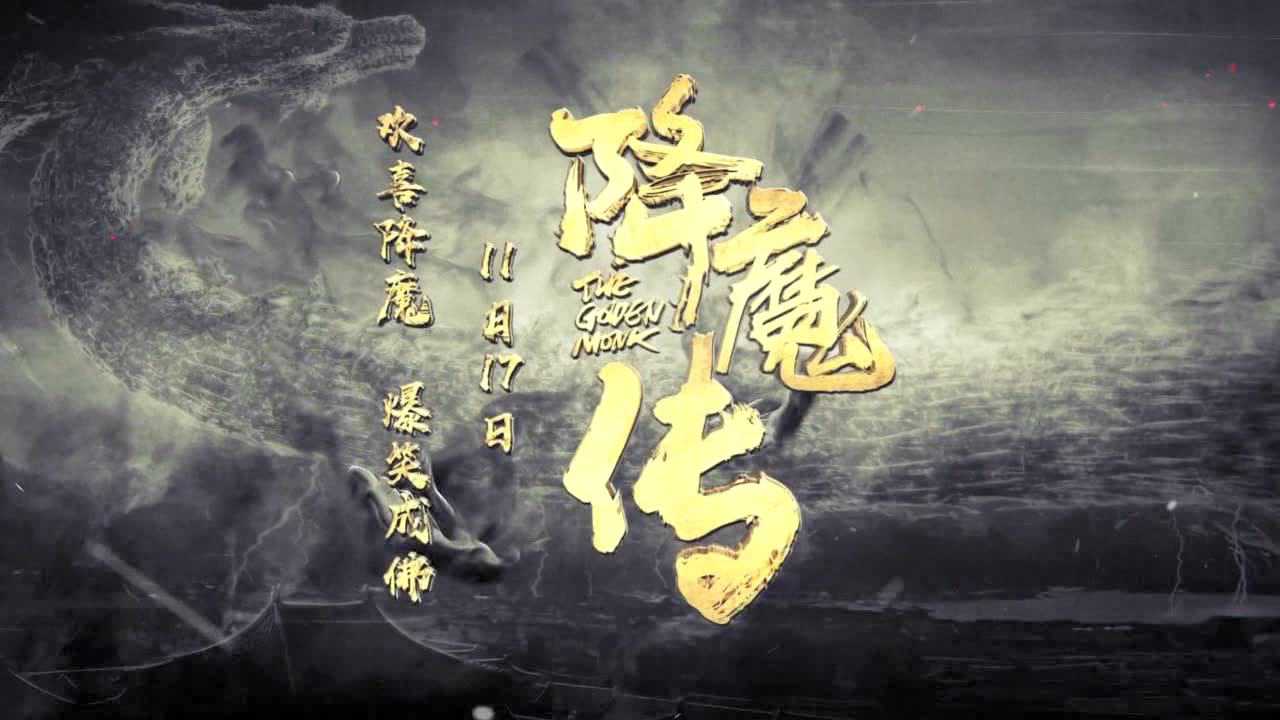 降魔传
THE
GODEN
MONK
11月17日
欢喜降魔 爆笑成佛